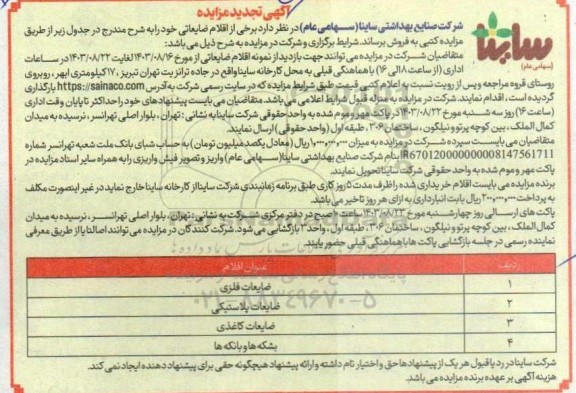 آگهی تجدید مزایده
ساینا
(سهامی عام)
شرکت صنایع بهداشتی ساینا (سهامی عام) در نظر دارد برخی از اقلام ضایعاتی خود را به شرح مندرج در جدول زیر از طریق
مزایده کتبی به فروش برساند. شرایط برگزاری و شرکت در مزایده به شرح ذیل می باشد:
متقاضیان شرکت در مزایده می توانند جهت بازدید از نمونه اقلام ضایعاتی از مورخ ۱۴۰۳/۰۸/۱۶ لغایت ۱۴۰۳/۰۸/۲۲ در ساعات
اداری (از ساعت ۸ الی ۱۶) با هماهنگی قبلی به محل کارخانه ساینا واقع در جاده ترانزیت تهران تبریز، ۱۷ کیلومتری ابهر، روبروی
روستای قروه مراجعه و پس از رویت نسبت به اعلام کتبی قیمت طبق شرایط مزایده که در سایت رسمی شرکت به آدرس https://sainaco.com بارگذاری
گردیده است، اقدام نمایند. شرکت در مزایده به منزله قبول شرایط اعلامی می باشد. متقاضیان می بایست پیشنهادهای خود را حداکثر تا پایان وقت اداری
(ساعت ۱۶) روز سه شنبه مورخ ۱۴۰۳/۰۸/۲۲ در پاکت مهر و موم شده به واحد حقوقی شرکت ساینا به نشانی: تهران، بلوار اصلی تهرانسر، نرسیده به میدان
کمال الملک، بین کوچه پرتو و نیلگون، ساختمان ۳۰۶، طبقه اول (واحد حقوقی) ارسال نمایند.
متقاضیان می بایست سپرده شرکت در مزایده به میزان ۱،۰۰۰،۰۰۰،۰۰۰ ریال (معادل یکصد میلیون تومان) به حساب شبای بانک ملت شعبه تهرانسر شماره
IR670120000000008147561711 بنام شرکت صنایع بهداشتی ساینا (سهامی عام) واریز و تصویر فیش واریزی را به همراه سایر اسناد مزایده در
پاکت مهر و موم شده به واحد حقوقی شرکت ساینا تحویل نمایند.
برنده مزایده می بایست اقلام خریداری شده را ظرف مدت ۵ روز کاری طبق برنامه زمانبندی شرکت ساینا از کارخانه ساینا خارج نماید در غیر اینصورت مکلف
به پرداخت ۲۰۰،۰۰۰،۰۰۰ ریال بابت انبارداری به ازای هر روز تاخیر می باشد.
پاکت های ارسالی روز چهارشنبه مورخ ۱۴۰۳/۰۸/۲۳ ساعت صبح در دفتر مرکزی شرکت به نشانی: تهران، بلوار اصلی تهرانسر، نرسیده به میدان
کمال الملک، بین کوچه پرتو و نیلگون، ساختمان ۳۰۶، طبقه اول، واحد ۳ بازگشایی می شود. شرکت کنندگان در مزایده می توانند اصالتا یا از طریق معرفی
نماینده رسمی در جلسه بازگشایی پاکت ها با هماهنگی قبلی حضور یابند.
ردیف عنوان اقلام
۱ ضایعات فلزی
۲ ضایعات پلاستیکی
۳ ضایعات کاغذی
۴ بشکه ها و بانکه ها
شرکت ساینا در رد یا قبول هر یک از پیشنهادها حق و اختیار تام داشته و ارائه پیشنهاد هیچگونه حقی برای پیشنهاد دهنده ایجاد نمی کند.
هزینه آگهی بر عهده برنده مزایده می باشد.